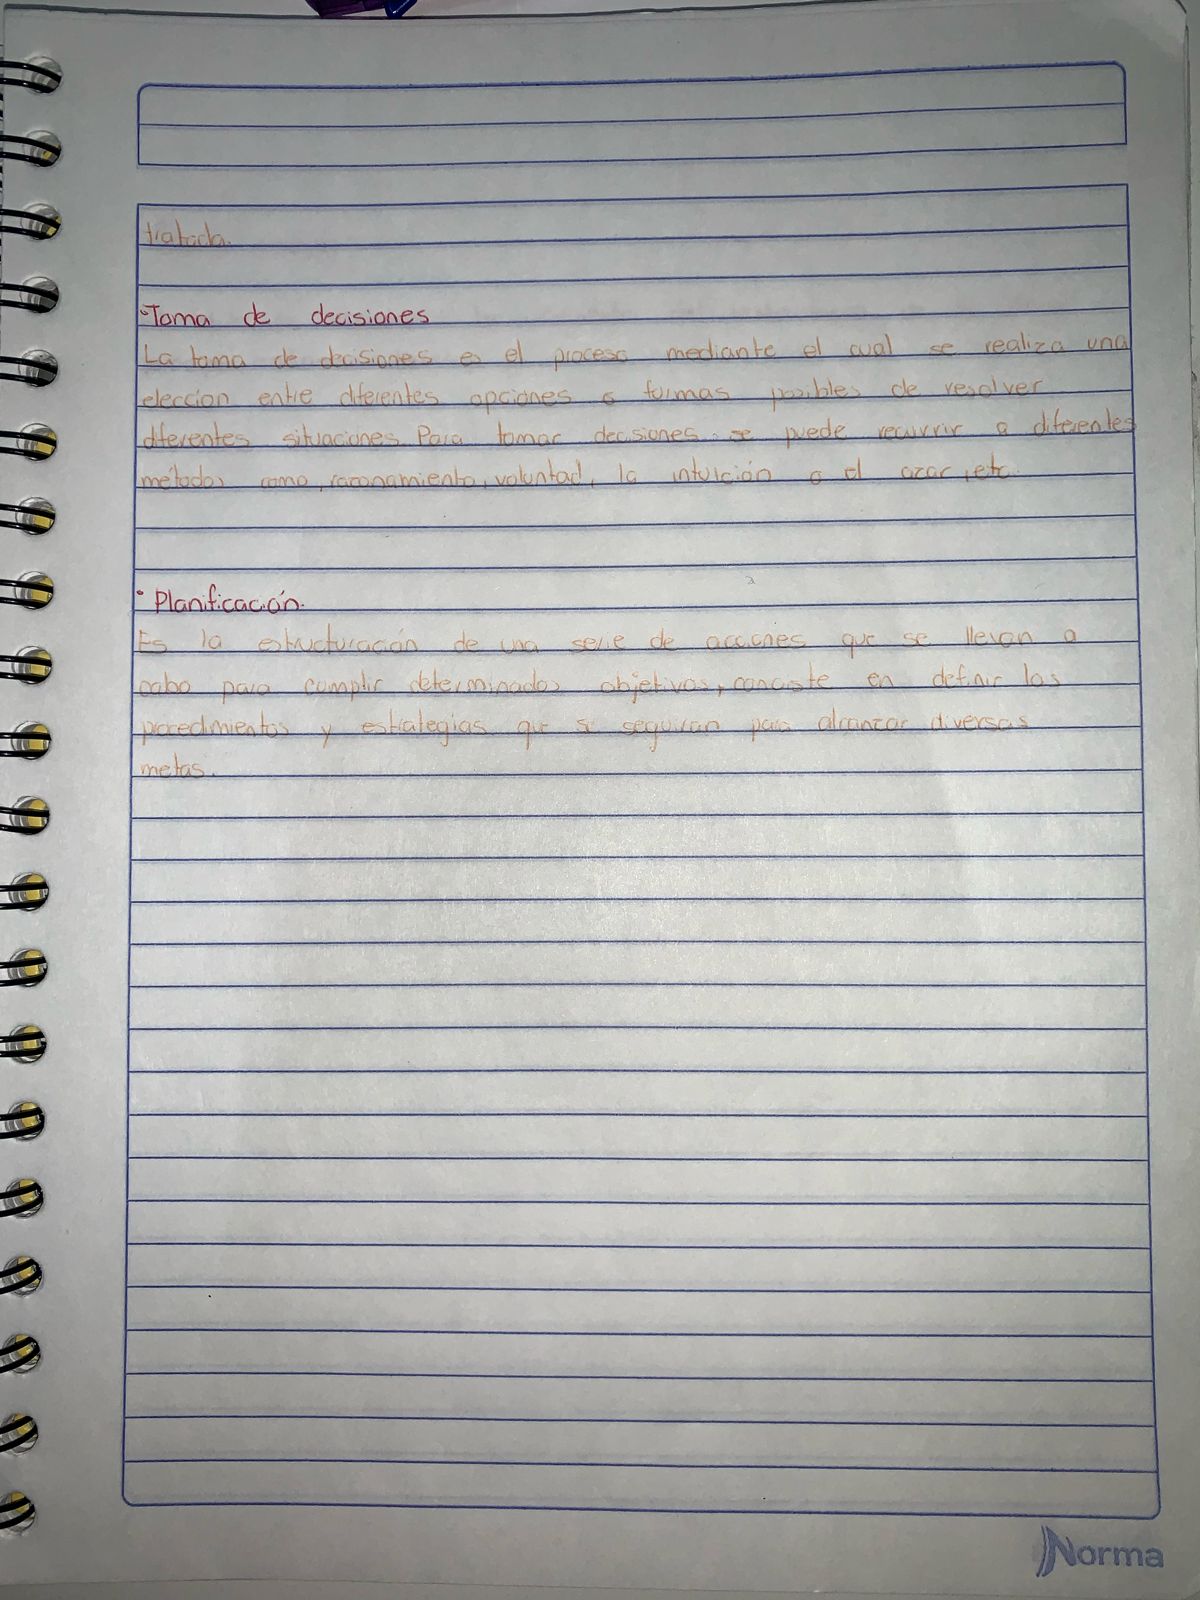 tratada.
•Toma de decisiones
La toma de decisiones es el proceso mediante el cual se realiza una
elección entre diferentes opciones o formas posibles de resolver
diferentes situaciones. Para tomar decisiones se puede recurrir a diferentes
métodos como, razonamiento, voluntad, la intuición o el azar, etc.
• Planificación.
Es la estructuración de una serie de acciones que se llevan a
cabo para cumplir determinados objetivos, conciste en definir los
procedimientos y estrategias que se seguiran para alcanzar diversas
metas.
Norma